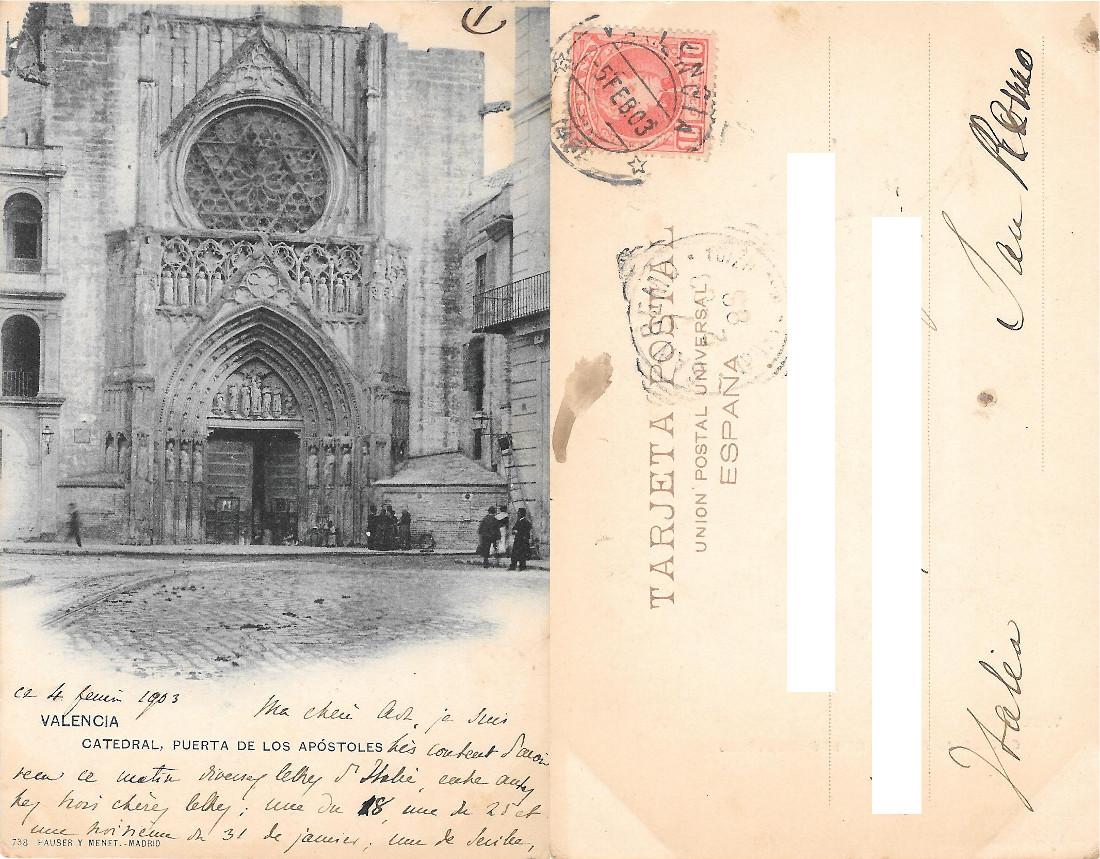 1
ce 4 fevrier 1903
VALENCIA
Ma chère Ast, je suis
CATEDRAL, PUERTA DE LOS APÓSTOLES très content d'avoir
recu ce matin diverses lettres d'Italie, entre autres
tes trois chères lettres; une du 18, une du 25 et
une troisième du 31 de janvier; une de Seville,
738 HAUSER Y MENET.-MADRID
VALENCIA
5 FEB 03
10
TARJETA POSTAL
UNION POSTAL UNIVERSAL
ESPAÑA
San Remo
Italia